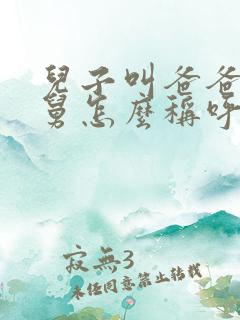 兒子叫爸爸
舅怎麼稱呼
寂無3
未經同意禁止轉載